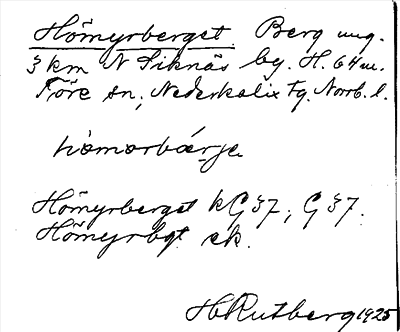 Hömyrberget. Berg ung.
3 km N Siknäs by. H. 64 m.
Töre sn, Nederkalix tg. Norrb. l.
hömorbærje
Hömyrberget kG 37, G 37.
Hömyrbgt ek.
H Rutberg 1925